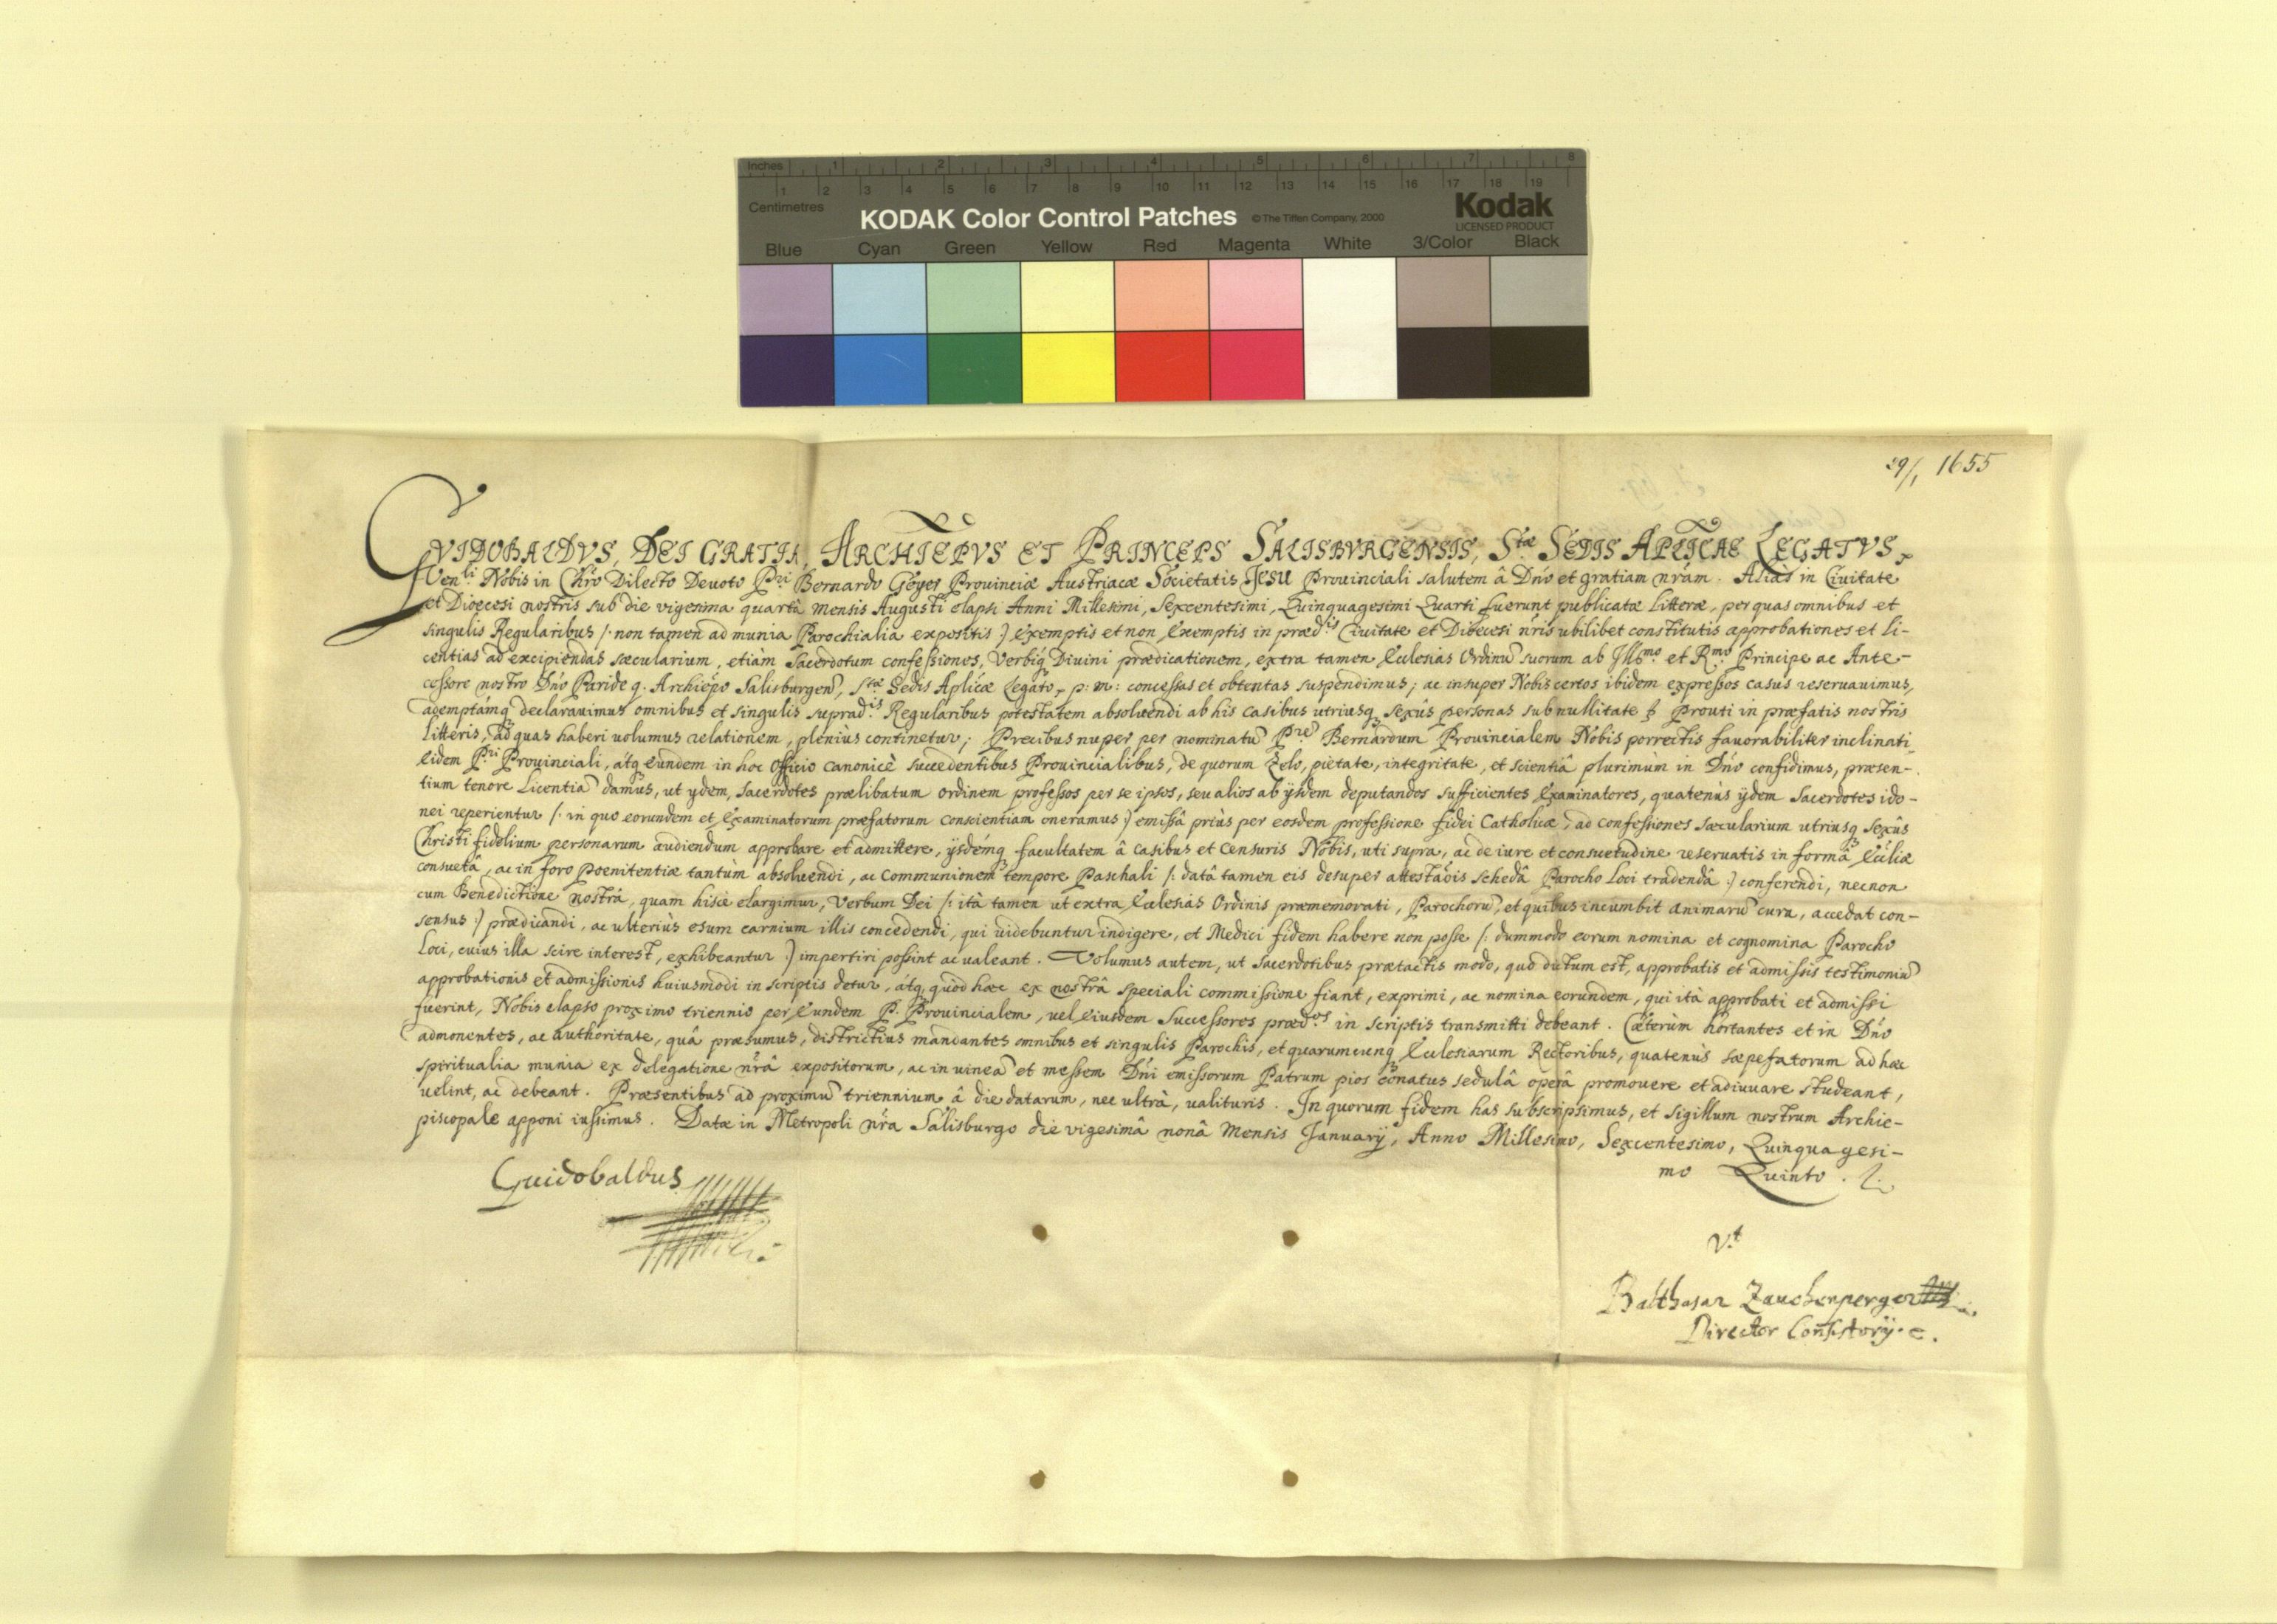 Inches 1 2 3 4 5 6 7 8
1 2 3 4 5 6 7 8 9 10 11 12 13 14 15 16 17 18 19
Centimetres
KODAK Color Control Patches © The Tiffen Company, 2000 Kodak
LICENSED PRODUCT
Blue Cyan Green Yellow Red Magenta White 3/Color Black
29/1 1655
GVIDOBALDVS, DEI GRATIA, ARCHIEPVS ET PRINCEPS SALISBVRGENSIS, Stæ SEDIS APLICAE LEGATVS,
Venli Nobis in Chro Dilecto Devoto Pri Bernardo Geyer Prouinciæ Austriacæ Societatis Jesu Prouinciali salutem â Dno et gratiam nram. Aliàs in Ciuitate
et Dioecesi nostris sub die vigesima quartâ mensis Augusti elapsi Anni Millesimi, Sexcentesimi, Quinquagesimi Quarti fuerunt publicatæ Litteræ, per quas omnibus et
singulis Regularibus /: non tamen ad munia Parochialia expositis :/ exemptis et non exemptis in prædis Ciuitate et Dioecesi nris ubilibet constitutis approbationes et li-
centias ad excipiendas sæcularium, etiàm Sacerdotum confessiones, Verbiq Diuini prædicationem, extra tamen Ecclesias Ordinu suorum ab Illmo et Rmo Principe ac Ante-
cessore nostro Dno Paride q. Archiepo Salisburgen, Stæ Sedis Aplicæ Legato, p: m: concessas et obtentas suspendimus; ac insuper Nobis certos ibidem expressos casus reseruauimus,
ademptamq declarauimus omnibus et singulis supradis Regularibus potestatem absoluendi ab his casibus utriusq sexûs personas sub nullitate prouti in præfatis nostris
litteris, ad quas haberi uolumus relationem, pleniùs continetur; Precibus nuper per nominatu Prem Bernardum Prouincialem Nobis porrectis fauorabiliter inclinati,
eidem Pri Prouinciali, atq eundem in hoc Officio canonicè succedentibus Prouincialibus, de quorum Zelo, pietate, integritate, et scientiâ plurimùm in Dno confidimus, præsen-
tium tenore Licentia damus, ut ydem, Sacerdotes prælibatum ordinem professos per se ipsos, seu alios ab ysdem deputandos sufficientes Examinatores, quatenùs ÿdem Sacerdotes ido-
nei reperientur /: in quo eorundem et Examinatorum præfatorum conscientiam oneramus :/ emissâ priùs per eosdem professione fidei Catholicæ, ad confessiones sæcularium utriusq sexûs
Christi fidelium personarum audiendum approbare et admittere, ÿsdemq facultatem â casibus et censuris Nobis, uti supra, ac de iure et consuetudine reseruatis in formâ Eccliæ
consuetâ, ac in foro Poenitentiæ tantùm absoluendi, ac Communionem tempore Paschali /: datâ tamen eis desuper attestaois schedâ Parocho Loci tradendâ :/ conferendi, necnon
cum Benedictione nostrâ, quam hisce elargimur, Verbum Dei /: ità tamen ut extra Ecclesias Ordinis præmemorati, Parochoru, et quibus incumbit animaru cura, accedat con-
sensus :/ prædicandi, ac ulteriùs esum carnium illis concedendi, qui uidebuntur indigere, et Medici fidem habere non posse /: dummodo eorum nomina et cognomina Parocho
Loci, cuius illa scire interest, exhibeantur :/ impertiri possint ac ualeant. Volumus autem, ut Sacerdotibus prætactis modo, quo dictum est, approbatis et admissis testimoniu
approbationis et admissionis huiusmodi in scriptis detur, atq quòd hæc ex nostrâ speciali commissione fiant, exprimi, ac nomina eorundem, qui ità approbati et admissi
fuerint, Nobis elapso proximo triennio per eundem P. Prouincialem, uel Eiusdem Successores prædos in scriptis transmitti debeant. Cæterùm hortantes et in Dno
admonentes, ac authoritate, quâ præsumus, districtius mandantes omnibus et singulis Parochis, et quarumcunq Ecclesiarum Rectoribus, quatenùs sæpefatorum ad hæc
spiritualia munia ex delegatione nrâ expositorum, ac in uinea et messem Dni emissorum Patrum pios conatus sedulâ operâ promouere et adiuuare studeant,
uelint, ac debeant. Præsentibus ad proximu triennium â die datarum, nec ultrà, ualituris. In quorum fidem has subscripsimus, et sigillum nostrum Archie-
piscopale apponi iussimus. Datæ in Metropoli nra Salisburgo die vigesimâ nonâ Mensis Januarÿ, Anno Millesimo, Sexcentesimo, Quinquagesi-
mo Quinto.
Guidobaldus
Vt
Balthasar Zaucherperger
Director Consistorÿ